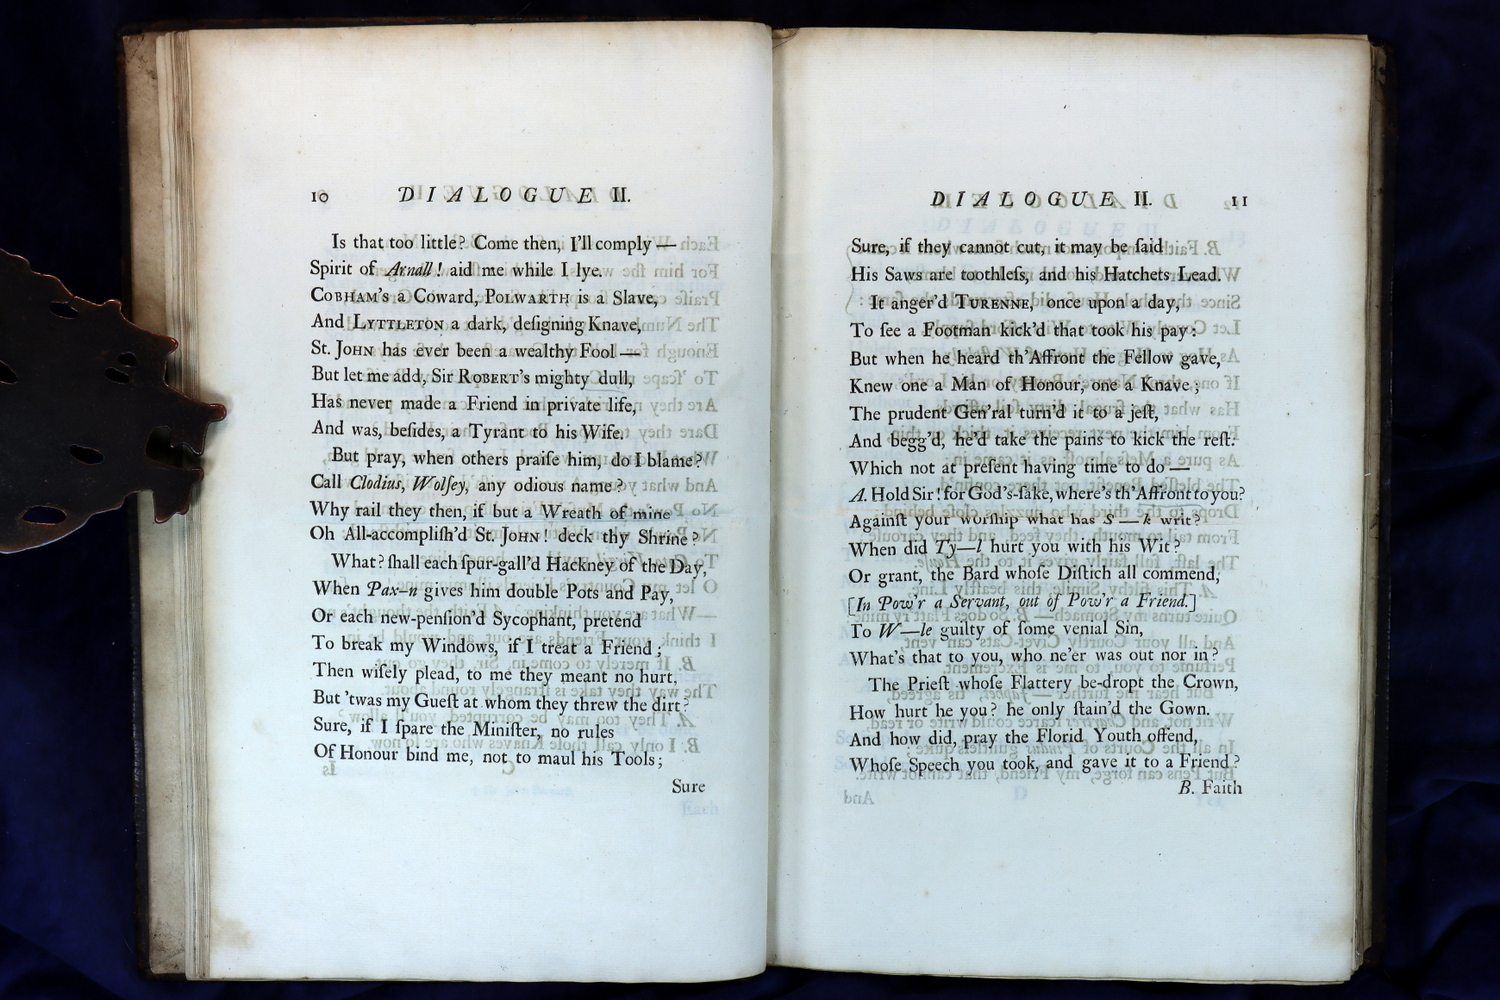 10 DIALOGUE II.
Is that too little? Come then, I'll comply —
Spirit of Arnall! aid me while I lye.
COBHAM's a Coward, POLWARTH is a Slave,
And LYTTLETON a dark, deſigning Knave,
St. JOHN has ever been a wealthy Fool —
But let me add, Sir ROBERT's mighty dull,
Has never made a Friend in private life,
And was, beſides, a Tyrant to his Wife.
But pray, when others praiſe him, do I blame?
Call Clodius, Wolſey, any odious name?
Why rail they then, if but a Wreath of mine
Oh All-accompliſh'd St. JOHN! deck thy Shrine?
What? ſhall each ſpur-gall'd Hackney of the Day,
When Pax-n gives him double Pots and Pay,
Or each new-penſion'd Sycophant, pretend
To break my Windows, if I treat a Friend;
Then wiſely plead, to me they meant no hurt,
But 'twas my Gueſt at whom they threw the dirt?
Sure, if I ſpare the Miniſter, no rules
Of Honour bind me, not to maul his Tools;
Sure
DIALOGUE II. 11
Sure, if they cannot cut, it may be ſaid
His Saws are toothleſs, and his Hatchets Lead.
It anger'd TURENNE, once upon a day,
To ſee a Footman kick'd that took his pay:
But when he heard th'Affront the Fellow gave,
Knew one a Man of Honour, one a Knave;
The prudent Gen'ral turn'd it to a jeſt,
And begg'd, he'd take the pains to kick the reſt.
Which not at preſent having time to do —
A. Hold Sir! for God's-ſake, where's th'Affront to you?
Againſt your worſhip what has S—k writ?
When did Ty—l hurt you with his Wit?
Or grant, the Bard whoſe Diſtich all commend,
[In Pow'r a Servant, out of Pow'r a Friend.]
To W—le guilty of ſome venial Sin,
What's that to you, who ne'er was out nor in?
The Prieſt whoſe Flattery be-dropt the Crown,
How hurt he you? he only ſtain'd the Gown.
And how did, pray, the Florid Youth offend,
Whoſe Speech you took, and gave it to a Friend?
B. Faith